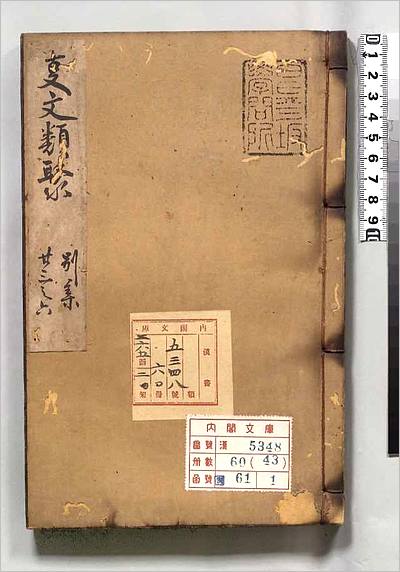 叓文類聚
別集
廿三之六
昌平坂
學問所
内閣文庫
漢書
類
五三四八號
六〇冊
内閣文庫
番號 漢 5348
冊數 60(43)
函號 61 1
1 2 3 4 5 6 7 8 9 10